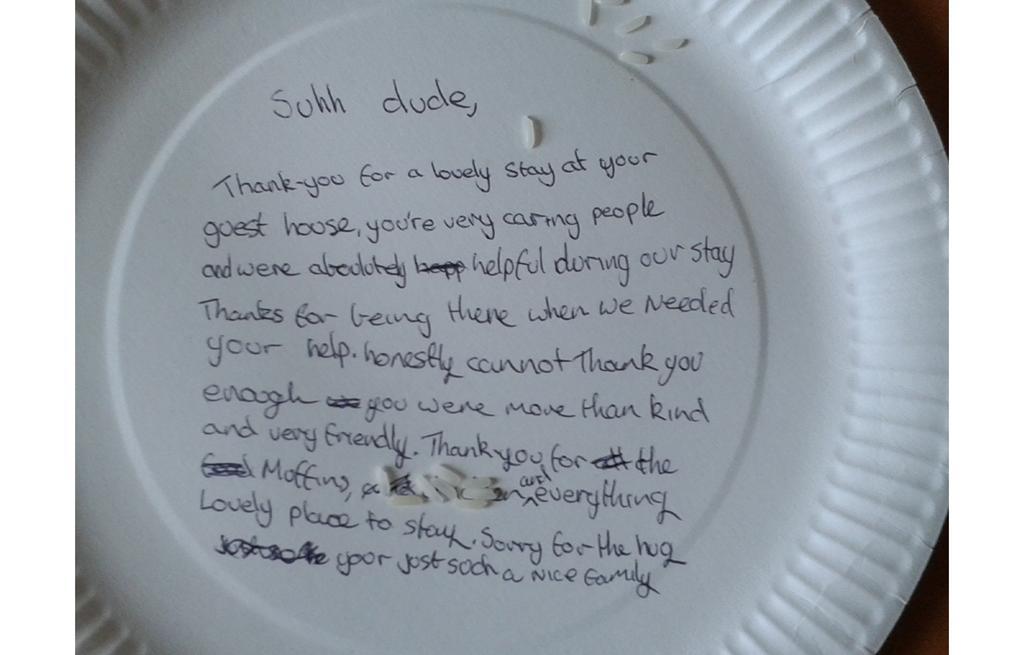 Suhh dude,
Thank-you for a lovely stay at your
guest house, you're very caring people
and were absolutely helpful during our stay
Thanks for being there when we Needed
your help. honestly cannot Thank you
enough you were more than kind
and very friendly. Thank you for the
Moffins, and everything
Lovely place to stay. Sorry for the hug
your just such a Nice family